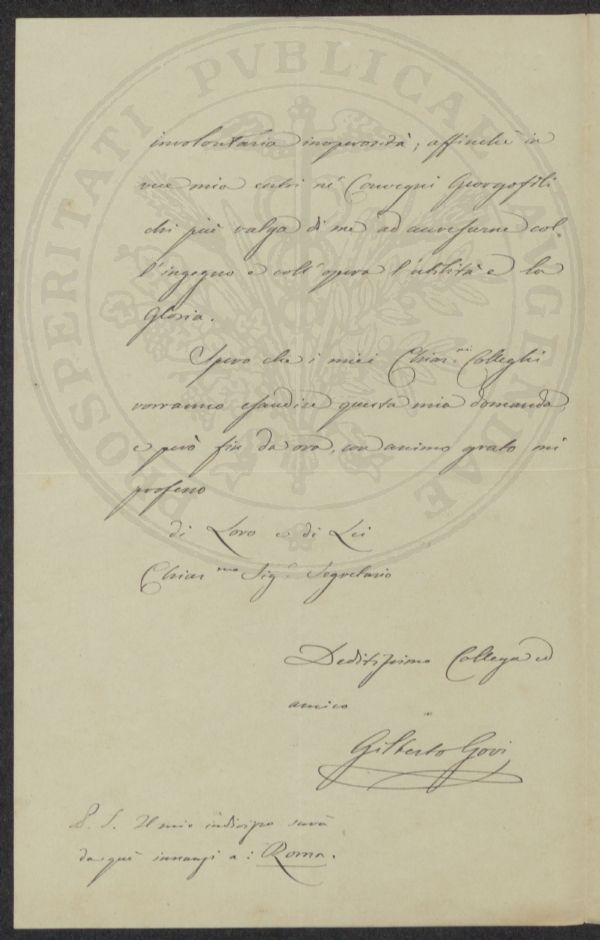 PROSPERITATI PVBLICAE AVGENDAE
involontaria inoperosità; affinché in
vece mia entri né Convegni Georgofili
chi più valga di me ad aumentarne col-
l'ingegno e coll'opera l'utilità e la
gloria.
Spero che i miei Chiar.mi Colleghi
vorranno esaudire questa mia domanda
e però fin da ora, con animo grato mi
professo
di Loro e di Lei
Chiar.mo Sig.e Segretario
Deditissimo Collega ed
amico
Gilberto Govi
P. S. Il mio indirizzo sarà
da qui innanzi a: Roma.